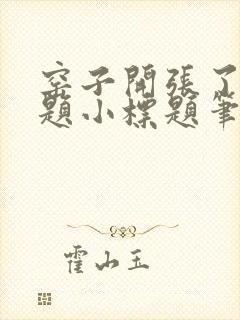 窑子開張了
題小標題筆
霍山玉